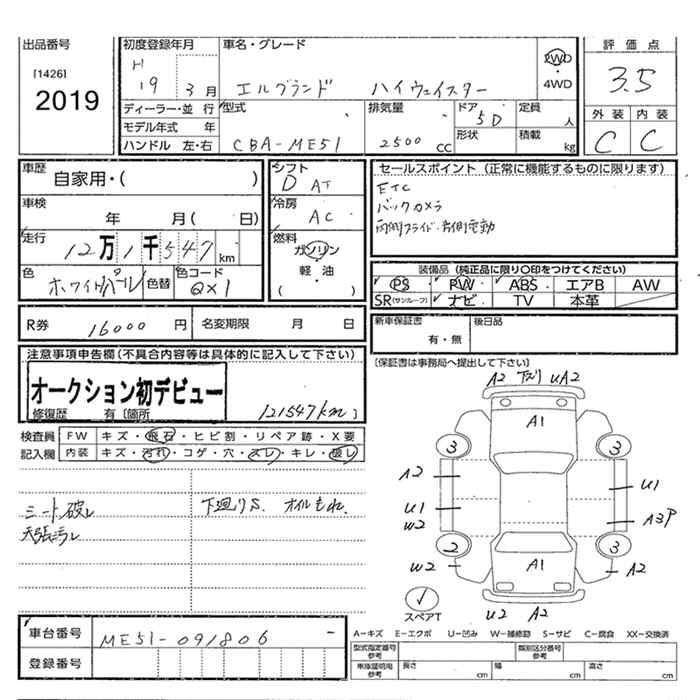 出品番号
[1426]
2019
初度登録年月
H
19 3 月
車名・グレード
エルグランド ハイウェイスター
2WD
・
4WD
評価点
3.5
外装 内装
C C
ディーラー・並行
モデル年式 年
ハンドル 左・右
型式
CBA-ME51
排気量
2500 CC
ドア
5D
形状
定員
人
積載
kg
車歴
自家用・( )
車検
年 月( 日)
走行
12万1千547 km
色
ホワイトパール
色替
色コード
QX1
シフト
D AT
冷房
AC
燃料
ガソリン
・
軽・油
( )
セールスポイント (正常に機能するものに限ります)
ETC
バックカメラ
両側スライド・右側電動
装備品 (純正品に限り〇印をつけてください)
PS PW ABS エアB AW
SR(サンルーフ) ナビ TV 本革
R券 16000 円 名変期限 月 日
新車保証書
有・無
後日品
[保証書は事務局へ提出して下さい]
注意事項申告欄(不具合内容等は具体的に記入して下さい)
オークション初デビュー
修復歴 有 [箇所 121547km ]
検査員
記入欄
FW キズ・飛石・ヒビ割・リペア跡・X要
内装 キズ・汚れ・コゲ・穴・スレ・キレ・破レ
シート破レ
天張汚レ
下廻りS. オイルもれ.
A2 下ズリ UA2
A1
3 3
A2
U1
U1
W2
A3P
2 3
W2 A2
A1
スペアT
U2 A2
車台番号 ME51-091806
登録番号
A-キズ E-エクボ U-凹み W-補修跡 S-サビ C-腐食 XX-交換済
型式指定番号
参考
類別区分番号
参考
車庫証明用
参考
長さ cm 幅 cm 高さ cm